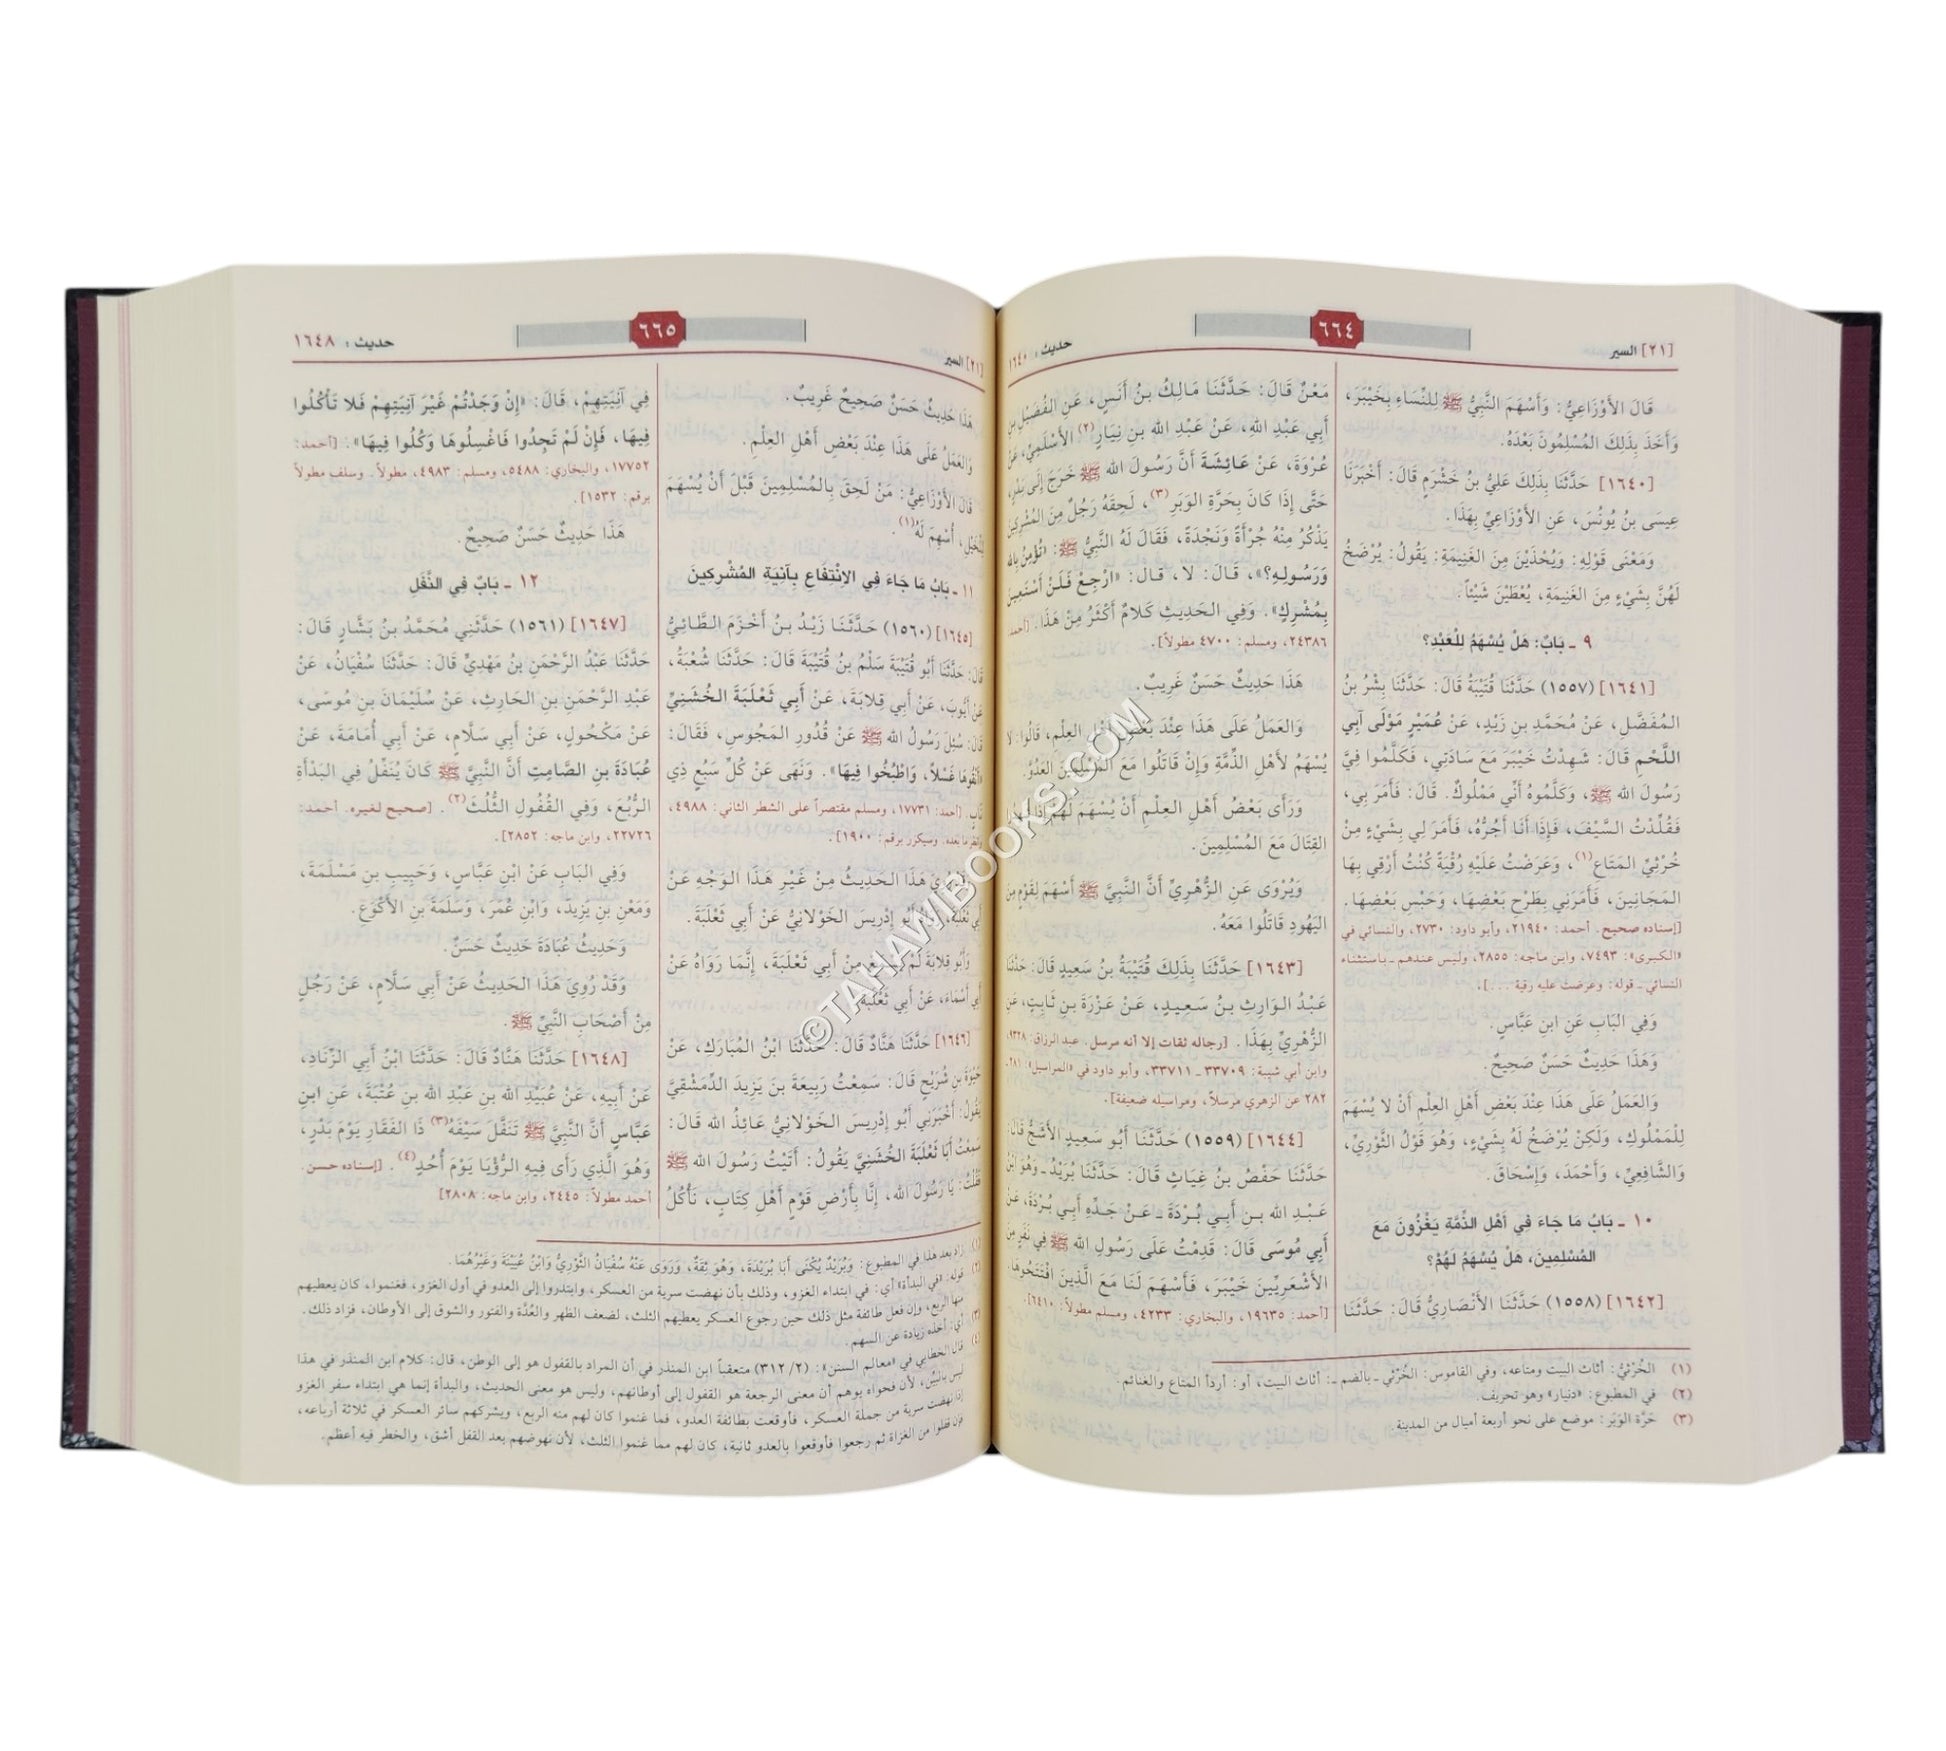 [٢١] السير
٦٦٤
حديث: ١٦٤٠
قَالَ الأَوْزَاعِيُّ: وَأَسْهَمَ النَّبِيُّ ﷺ لِلنِّسَاءِ بِخَيْبَرَ،
وَأَخَذَ بِذَلِكَ المُسْلِمُونَ بَعْدَهُ.
[١٦٤٠] حَدَّثَنَا بِذَلِكَ عَلِيُّ بنُ خَشْرَمٍ قَالَ: أَخْبَرَنَا
عِيسَى بنُ يُونُسَ، عَنِ الأَوْزَاعِيِّ بِهَذَا.
وَمَعْنَى قَوْلِهِ: وَيُحْذَيْنَ مِنَ الغَنِيمَةِ: يَقُولُ: يُرْضَخُ
لَهُنَّ بِشَيْءٍ مِنَ الغَنِيمَةِ، يُعْطَيْنَ شَيْئاً.
٩ ـ بَابٌ: هَلْ يُسْهَمُ لِلْعَبْدِ؟
[١٦٤١] (١٥٥٧) حَدَّثَنَا قُتَيْبَةُ قَالَ: حَدَّثَنَا بِشْرُ بنُ
المُفَضَّلِ، عَنْ مُحَمَّدِ بنِ زَيْدٍ، عَنْ عُمَيْرٍ مَوْلَى آبِي
اللَّحْمِ قَالَ: شَهِدْتُ خَيْبَرَ مَعَ سَادَتِي، فَكَلَّمُوا فِيَّ
رَسُولَ الله ﷺ، وَكَلَّمُوهُ أَنِّي مَمْلُوكٌ. قَالَ: فَأَمَرَ بِي،
فَقُلِّدْتُ السَّيْفَ، فَإِذَا أَنَا أَجُرُّهُ، فَأَمَرَ لِي بِشَيْءٍ مِنْ
خُرْثِيِّ المَتَاعِ(١)، وَعَرَضْتُ عَلَيْهِ رُقْيَةً كُنْتُ أَرْقِي بِهَا
المَجَانِينَ، فَأَمَرَنِي بِطَرْحِ بَعْضِهَا، وَحَبْسِ بَعْضِهَا.
[إسناده صحيح. أحمد: ٢١٩٤٠، وأبو داود: ٢٧٣٠، والنسائي في
«الكبرى»: ٧٤٩٣، وابن ماجه: ٢٨٥٥، وليس عندهم ـ باستثناء
النسائي ـ قوله: وعرضت عليه رقية . . .].
وَفِي البَابِ عَنِ ابنِ عَبَّاسٍ.
وَهَذَا حَدِيثٌ حَسَنٌ صَحِيحٌ.
وَالعَمَلُ عَلَى هَذَا عِنْدَ بَعْضِ أَهْلِ العِلْمِ أَنْ لا يُسْهَمَ
لِلْمَمْلُوكِ، وَلَكِنْ يُرْضَخُ لَهُ بِشَيْءٍ، وَهُوَ قَوْلُ الثَّوْرِيِّ،
وَالشَّافِعِيِّ، وَأَحْمَدَ، وَإِسْحَاقَ.
١٠ ـ بَابُ مَا جَاءَ فِي أَهْلِ الذِّمَّةِ يَغْزُونَ مَعَ
المُسْلِمِينَ، هَلْ يُسْهَمُ لَهُمْ؟
[١٦٤٢] (١٥٥٨) حَدَّثَنَا الأَنْصَارِيُّ قَالَ: حَدَّثَنَا
مَعْنٌ قَالَ: حَدَّثَنَا مَالِكُ بنُ أَنَسٍ، عَنِ الفُضَيْلِ بنِ
أَبِي عَبْدِ اللهِ، عَنْ عَبْدِ الله بنِ نِيَارٍ(٢) الأَسْلَمِيِّ، عَنْ
عُرْوَةَ، عَنْ عَائِشَةَ أَنَّ رَسُولَ الله ﷺ خَرَجَ إِلَى بَدْرٍ،
حَتَّى إِذَا كَانَ بِحَرَّةِ الوَبَرِ(٣)، لَحِقَهُ رَجُلٌ مِنَ المُشْرِكِينَ
يَذْكُرُ مِنْهُ جُرْأَةً وَنَجْدَةً، فَقَالَ لَهُ النَّبِيُّ ﷺ: «تُؤْمِنُ بِالله
وَرَسُولِهِ؟»، قَالَ: لا، قَالَ: «ارْجِعْ فَلَنْ أَسْتَعِينَ
بِمُشْرِكٍ». وَفِي الحَدِيثِ كَلامٌ أَكْثَرُ مِنْ هَذَا. [أحمد:
٢٤٣٨٦، ومسلم: ٤٧٠٠ مطولاً].
هَذَا حَدِيثٌ حَسَنٌ غَرِيبٌ.
وَالعَمَلُ عَلَى هَذَا عِنْدَ بَعْضِ أَهْلِ العِلْمِ، قَالُوا: لا
يُسْهَمُ لأَهْلِ الذِّمَّةِ وَإِنْ قَاتَلُوا مَعَ المُسْلِمِينَ العَدُوَّ.
وَرَأَى بَعْضُ أَهْلِ العِلْمِ أَنْ يُسْهَمَ لَهُمْ إِذَا شَهِدُوا
القِتَالَ مَعَ المُسْلِمِينَ.
وَيُرْوَى عَنِ الزُّهْرِيِّ أَنَّ النَّبِيَّ ﷺ أَسْهَمَ لِقَوْمٍ مِنَ
اليَهُودِ قَاتَلُوا مَعَهُ.
[١٦٤٣] حَدَّثَنَا بِذَلِكَ قُتَيْبَةُ بنُ سَعِيدٍ قَالَ: حَدَّثَنَا
عَبْدُ الوَارِثِ بنُ سَعِيدٍ، عَنْ عَزْرَةَ بنِ ثَابِتٍ، عَنِ
الزُّهْرِيِّ بِهَذَا. [رجاله ثقات إلا أنه مرسل. عبد الرزاق: ٩٣٢٨،
وابن أبي شيبة: ٣٣٧٠٩ ـ ٣٣٧١١، وأبو داود في «المراسيل»: ٢٨١،
٢٨٢ عن الزهري مرسلاً، ومراسيله ضعيفة].
[١٦٤٤] (١٥٥٩) حَدَّثَنَا أَبُو سَعِيدٍ الأَشَجُّ قَالَ:
حَدَّثَنَا حَفْصُ بنُ غِيَاثٍ قَالَ: حَدَّثَنَا بُرَيْدُ ـ وَهُوَ ابْنُ
عَبْدِ الله بنِ أَبِي بُرْدَةَ ـ عَنْ جَدِّهِ أَبِي بُرْدَةَ، عَنْ
أَبِي مُوسَى قَالَ: قَدِمْتُ عَلَى رَسُولِ الله ﷺ فِي نَفَرٍ مِنَ
الأَشْعَرِيِّينَ خَيْبَرَ، فَأَسْهَمَ لَنَا مَعَ الَّذِينَ افْتَتَحُوهَا.
[أحمد: ١٩٦٣٥، والبخاري: ٤٢٣٣، ومسلم مطولاً: ٦٤١٠].
(١) الخُرْثِيُّ: أثاث البيت ومتاعه، وفي القاموس: الخُرْثي ـ بالضم ـ: أثاث البيت، أو: أردأ المتاع والغنائم.
(٢) في المطبوع: «دنيار» وهو تحريف.
(٣) حَرَّة الوَبَر: موضع على نحو أربعة أميال من المدينة.
[٢١] السير
٦٦٥
حديث: ١٦٤٨
هَذَا حَدِيثٌ حَسَنٌ صَحِيحٌ غَرِيبٌ.
وَالعَمَلُ عَلَى هَذَا عِنْدَ بَعْضِ أَهْلِ العِلْمِ.
قَالَ الأَوْزَاعِيُّ: مَنْ لَحِقَ بِالمُسْلِمِينَ قَبْلَ أَنْ يُسْهَمَ
لِلْخَيْلِ، أُسْهِمَ لَهُ(١).
١١ ـ بَابُ مَا جَاءَ فِي الانْتِفَاعِ بِآنِيَةِ المُشْرِكِينَ
[١٦٤٥] (١٥٦٠) حَدَّثَنَا زَيْدُ بنُ أَخْزَمَ الطَّائِيُّ
قَالَ: حَدَّثَنَا أَبُو قُتَيْبَةَ سَلْمُ بنُ قُتَيْبَةَ قَالَ: حَدَّثَنَا شُعْبَةُ،
عَنْ أَيُّوبَ، عَنْ أَبِي قِلابَةَ، عَنْ أَبِي ثَعْلَبَةَ الخُشَنِيِّ
قَالَ: سُئِلَ رَسُولُ الله ﷺ عَنْ قُدُورِ المَجُوسِ، فَقَالَ:
«أَنْقُوهَا غَسْلاً، وَاطْبُخُوا فِيهَا». وَنَهَى عَنْ كُلِّ سَبُعٍ ذِي
نَابٍ. [أحمد: ١٧٧٣١، ومسلم مقتصراً على الشطر الثاني: ٤٩٨٨،
وانظر ما بعده. وسيكرر برقم: ١٩٠٠].
وَقَدْ رُوِيَ هَذَا الحَدِيثُ مِنْ غَيْرِ هَذَا الوَجْهِ عَنْ
أَبِي ثَعْلَبَةَ، رَوَاهُ أَبُو إِدْرِيسَ الخَوْلانِيُّ عَنْ أَبِي ثَعْلَبَةَ.
وَأَبُو قِلابَةَ لَمْ يَسْمَعْ مِنْ أَبِي ثَعْلَبَةَ، إِنَّمَا رَوَاهُ عَنْ
أَبِي أَسْمَاءَ، عَنْ أَبِي ثَعْلَبَةَ.
[١٦٤٦] حَدَّثَنَا هَنَّادٌ قَالَ: حَدَّثَنَا ابْنُ المُبَارَكِ، عَنْ
حَيْوَةَ بنِ شُرَيْحٍ قَالَ: سَمِعْتُ رَبِيعَةَ بنَ يَزِيدَ الدِّمَشْقِيَّ
يَقُولُ: أَخْبَرَنِي أَبُو إِدْرِيسَ الخَوْلانِيُّ عَائِذُ الله قَالَ:
سَمِعْتُ أَبَا ثَعْلَبَةَ الخُشَنِيَّ يَقُولُ: أَتَيْتُ رَسُولَ الله ﷺ
فَقُلْتُ: يَا رَسُولَ الله، إِنَّا بِأَرْضِ قَوْمٍ أَهْلِ كِتَابٍ، نَأْكُلُ
فِي آنِيَتِهِمْ، قَالَ: «إِنْ وَجَدْتُمْ غَيْرَ آنِيَتِهِمْ فَلا تَأْكُلُوا
فِيهَا، فَإِنْ لَمْ تَجِدُوا فَاغْسِلُوهَا وَكُلُوا فِيهَا». [أحمد:
١٧٧٥٢، والبخاري: ٥٤٨٨، ومسلم: ٤٩٨٣، مطولاً. وسلف مطولاً
برقم: ١٥٣٢].
هَذَا حَدِيثٌ حَسَنٌ صَحِيحٌ.
١٢ ـ بَابٌ فِي النَّفَلِ
[١٦٤٧] (١٥٦١) حَدَّثَنِي مُحَمَّدُ بنُ بَشَّارٍ قَالَ:
حَدَّثَنَا عَبْدُ الرَّحْمَنِ بنُ مَهْدِيٍّ قَالَ: حَدَّثَنَا سُفْيَانُ، عَنْ
عَبْدِ الرَّحْمَنِ بنِ الحَارِثِ، عَنْ سُلَيْمَانَ بنِ مُوسَى،
عَنْ مَكْحُولٍ، عَنْ أَبِي سَلَّامٍ، عَنْ أَبِي أُمَامَةَ، عَنْ
عُبَادَةَ بنِ الصَّامِتِ أَنَّ النَّبِيَّ ﷺ كَانَ يُنَفِّلُ فِي البَدْأَةِ
الرُّبُعَ، وَفِي القُفُولِ الثُّلُثَ(٢). [صحيح لغيره. أحمد:
٢٢٧٢٦، وابن ماجه: ٢٨٥٢].
وَفِي البَابِ عَنْ ابْنِ عَبَّاسٍ، وَحَبِيبِ بنِ مَسْلَمَةَ،
وَمَعْنِ بنِ يَزِيدَ، وَابْنِ عُمَرَ، وَسَلَمَةَ بنِ الأَكْوَعِ.
وَحَدِيثُ عُبَادَةَ حَدِيثٌ حَسَنٌ.
وَقَدْ رُوِيَ هَذَا الحَدِيثُ عَنْ أَبِي سَلَّامٍ، عَنْ رَجُلٍ
مِنْ أَصْحَابِ النَّبِيِّ ﷺ.
[١٦٤٨] حَدَّثَنَا هَنَّادٌ قَالَ: حَدَّثَنَا ابْنُ أَبِي الزِّنَادِ،
عَنْ أَبِيهِ، عَنْ عُبَيْدِ الله بنِ عَبْدِ الله بنِ عُتْبَةَ، عَنِ ابنِ
عَبَّاسٍ أَنَّ النَّبِيَّ ﷺ تَنَفَّلَ سَيْفَهُ(٣) ذَا الفَقَارِ يَوْمَ بَدْرٍ،
وَهُوَ الَّذِي رَأَى فِيهِ الرُّؤْيَا يَوْمَ أُحُدٍ(٤). [إسناده حسن.
أحمد مطولاً: ٢٤٤٥، وابن ماجه: ٢٨٠٨]
(١) زاد بعد هذا في المطبوع: وَبُرَيْدٌ يُكْنَى أَبَا بُرَيْدَةَ، وَهُوَ ثِقَةٌ، وَرَوَى عَنْهُ سُفْيَانُ الثَّوْرِيُّ وَابْنُ عُيَيْنَةَ وَغَيْرُهُمَا.
(٢) قوله: «في البدأة» أي: في ابتداء الغزو، وذلك بأن نهضت سرية من العسكر، وابتدروا إلى العدو في أول الغزو، فغنموا، كان يعطيهم
منها الربع، وإن فعل طائفة مثل ذلك حين رجوع العسكر يعطيهم الثلث، لضعف الظهر والعُدَّة والفتور والشوق إلى الأوطان، فزاد ذلك.
(٣) أي: أخذه زيادة عن السهم.
(٤) قال الخطابي في «معالم السنن»: (٢/ ٣١٢) متعقباً ابن المنذر في أن المراد بالقفول هو إلى الوطن، قال: كلام ابن المنذر في هذا
ليس بالبيِّن، لأن فحواه يوهم أن معنى الرجعة هو القفول إلى أوطانهم، وليس هو معنى الحديث، والبدأة إنما هي ابتداء سفر الغزو
إذا نهضت سرية من جملة العسكر، فأوقعت بطائفة العدو، فما غنموا كان لهم منه الربع، ويشركهم سائر العسكر في ثلاثة أرباعه،
فإن قفلوا من الغزاة ثم رجعوا فأوقعوا بالعدو ثانية، كان لهم مما غنموا الثلث، لأن نهوضهم بعد القفل أشق، والخطر فيه أعظم.
©TAHAWIBOOKS.COM